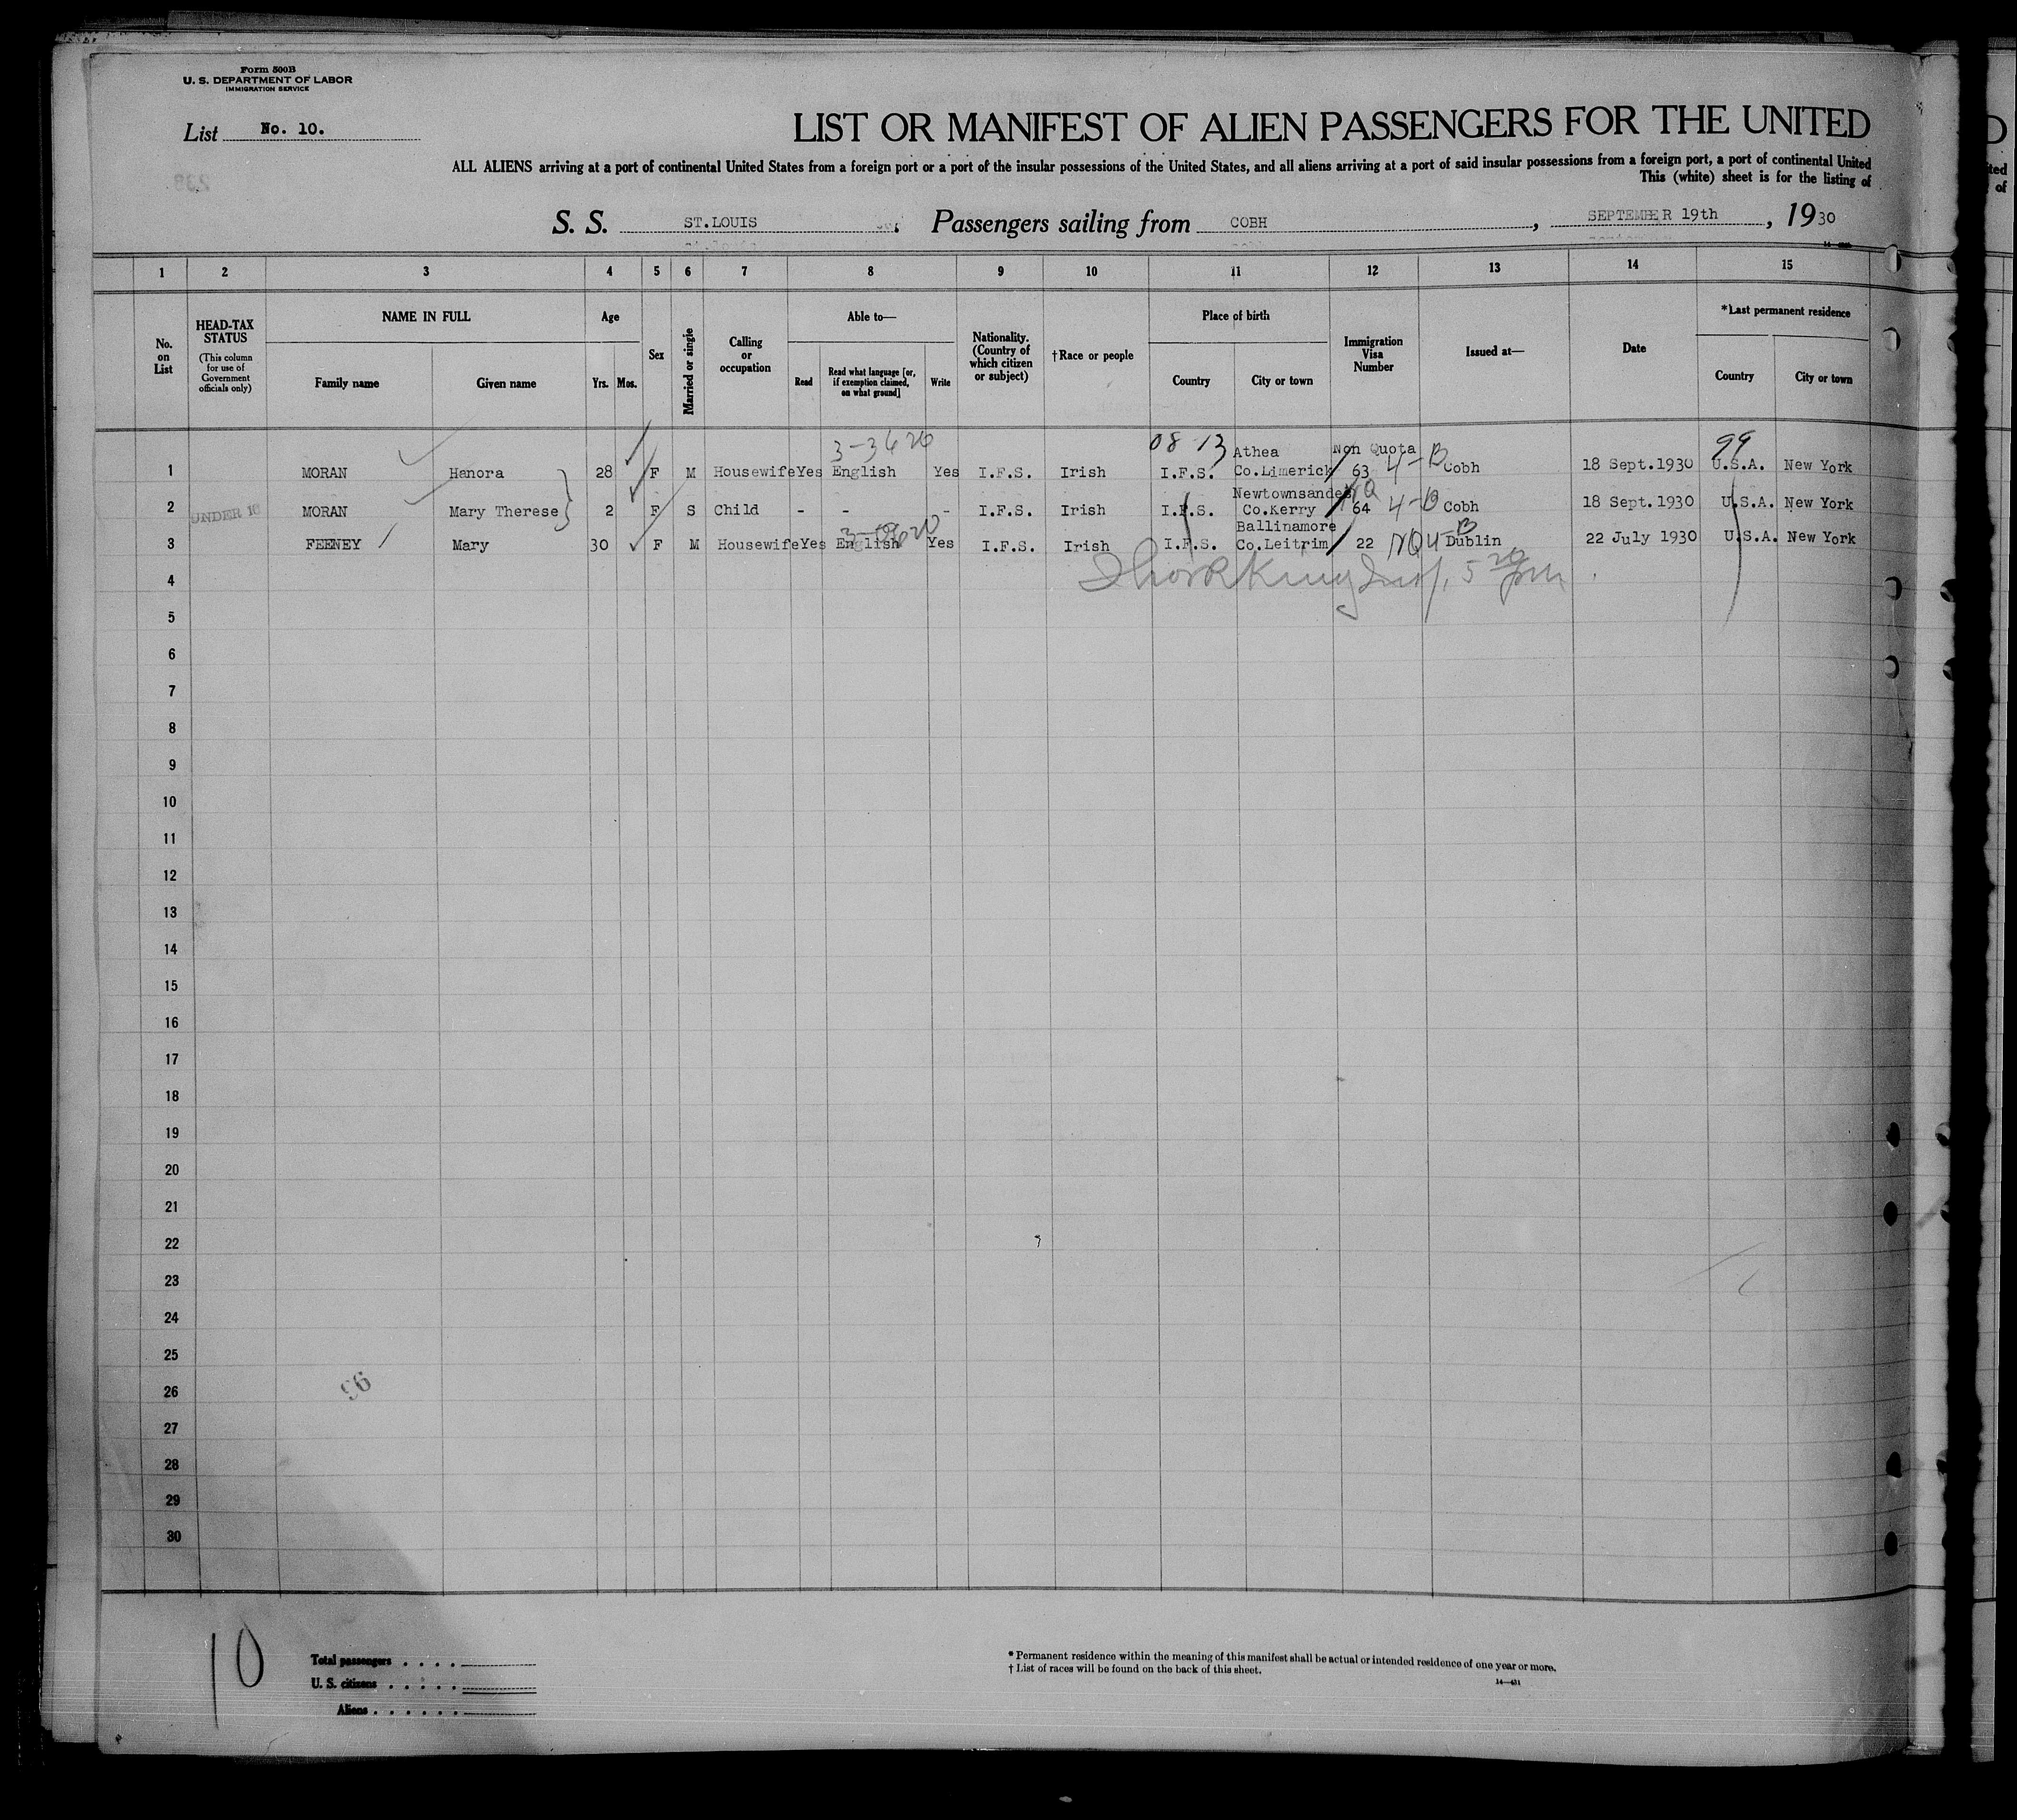 Form 500B
U. S. DEPARTMENT OF LABOR
IMMIGRATION SERVICE
List No. 10.
LIST OR MANIFEST OF ALIEN PASSENGERS FOR THE UNITED
ALL ALIENS arriving at a port of continental United States from a foreign port or a port of the insular possessions of the United States, and all aliens arriving at a port of said insular possessions from a foreign port, a port of continental United
This (white) sheet is for the listing of
S. S. ST.LOUIS , Passengers sailing from COBH , SEPTEMBER 19th , 1930
1 2 3 4 5 6 7 8 9 10 11 12 13 14 15
No. on List
HEAD-TAX STATUS
(This column for use of Government officials only)
NAME IN FULL
Family name Given name
Age
Yrs. Mos.
Sex
Married or single
Calling or occupation
Able to—
Read Read what language [or, if exemption claimed, on what ground] Write
Nationality. (Country of which citizen or subject)
†Race or people
Place of birth
Country City or town
Immigration Visa Number
Issued at—
Date
*Last permanent residence
Country City or town
3-3626 08-13 Athea Non Quota 99
1 MORAN Hanora 28 F M Housewife Yes English Yes I.F.S. Irish I.F.S. Co.Limerick 63 4-B Cobh 18 Sept.1930 U.S.A. New York
Newtownsandes
2 UNDER 16 MORAN Mary Therese 2 F S Child - - - I.F.S. Irish I.F.S. Co.Kerry 64 4-B Cobh 18 Sept.1930 U.S.A. New York
Ballinamore
3 FEENEY Mary 30 F M Housewife Yes English Yes I.F.S. Irish I.F.S. Co.Leitrim 22 NQ 4 B Dublin 22 July 1930 U.S.A. New York
4
5
6
7
8
9
10
11
12
13
14
15
16
17
18
19
20
21
22
23
24
25
26
27
28
29
30
96
10
Total passengers . . . .
U. S. citizens . . . . .
Aliens . . . . . .
* Permanent residence within the meaning of this manifest shall be actual or intended residence of one year or more.
† List of races will be found on the back of this sheet.
14—431